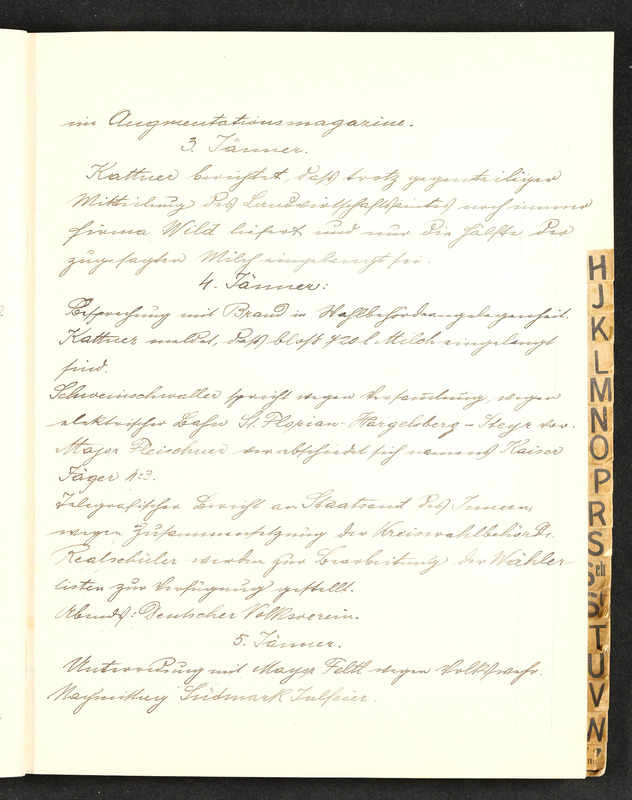 im Augmentationsmagazine.
3. Jänner.
Kattner berichtet, daß trotz gegenteiliger
Mitteilung des Landwirtschaftsamtes noch immer
Firma Wild liefert und nur die Hälfte der
zugesagten Milch eingelangt sei.
4. Jänner:
Besprechung mit Brand in Wahlbehördeangelegenheit.
Kattner meldet, daß bloß 420 l Milch eingelangt
sind.
Schweinschwaller spricht wegen Versamlung wegen
elektrischer Bahn St. Florian-Hargelsberg-Steyr vor.
Major Fleischner verabschiedet sich namens Kaiser
Jäger No 3.
Telegrafischer Bericht an Staatsamt des Innern,
wegen Zusammensetzung der Kreiswahlbehörde.
Realschüler werden zur Bearbeitung der Wähler-
listen zur Verfügung gestellt.
Abends: Deutscher Volksverein.
5. Jänner.
Unterredung mit Major Feltl wegen Volkswehr.
Nachmittag Südmark Julfeier.
H
J
K
L
M
N
O
P
R
S
Sch
St
T
U
V
W